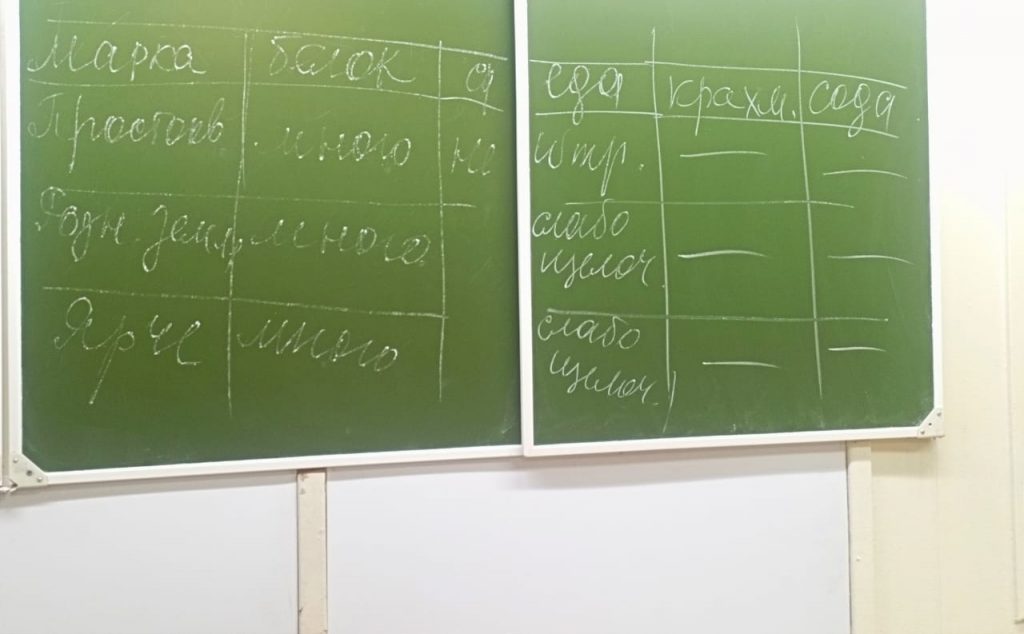 Марка белок ср еда крахм. сода
Простокв. много не йтр. — —
Родн. земл. много слабо
щелоч. — —
Ярче много слабо
щелоч. — —